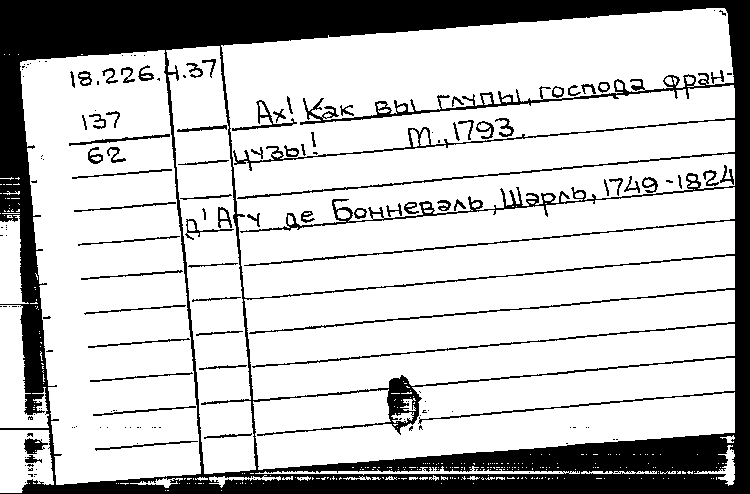 18.226.4.37
137 Ах! Как вы глупы, господа фран-
62 цузы! М., 1793.
д'Агу де Бонневаль, Шарль, 1749-1824